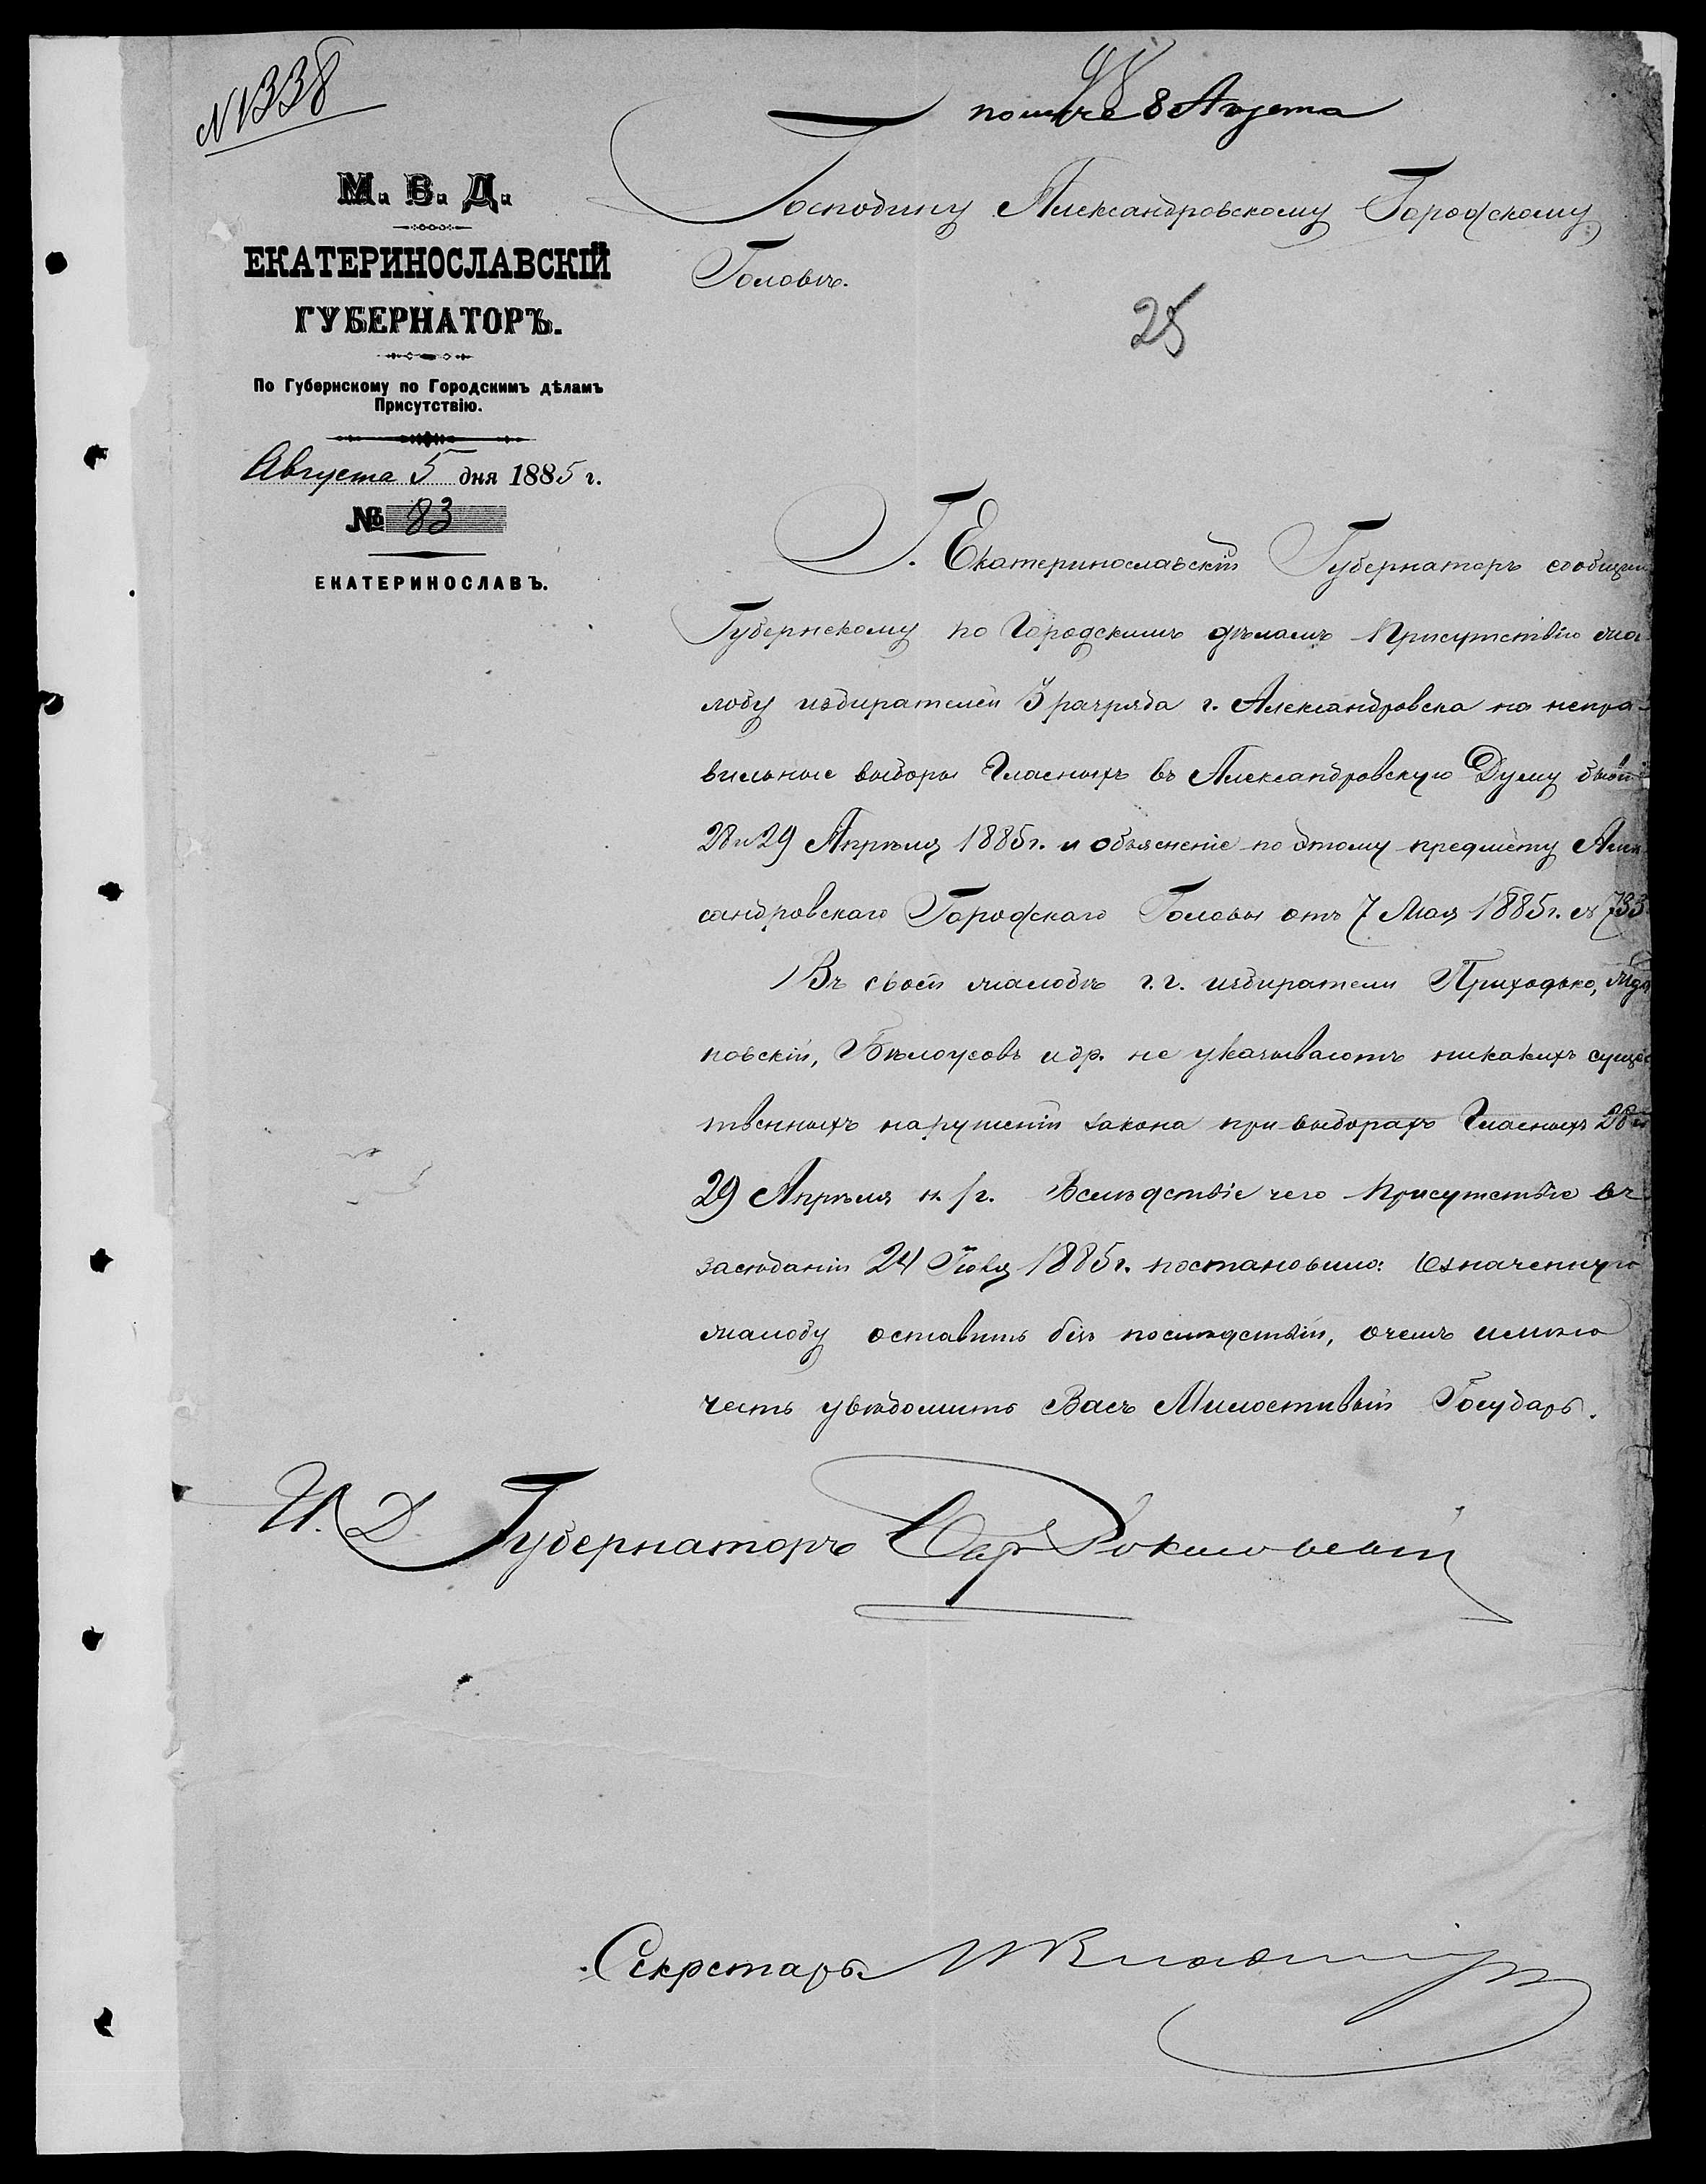 N 1338
получе 8 Августа
М. В. Д.
ЕКАТЕРИНОСЛАВСКІЙ
ГУБЕРНАТОРЪ.
По Губернскому по Городскимъ дѣламъ
Присутствію.
Августа 5 дня 1885 г.
№ 83
ЕКАТЕРИНОСЛАВЪ.
Господину Александровскому Городскому
Головѣ.
25
Г. Екатеринославскій Губернаторъ сообщилъ
Губернскому по Городскимъ дѣламъ Присутствію жа-
лобу избирателей 3 разряда г. Александровска на непра-
вильные выборы Гласныхъ въ Александровскую Думу бывш
28 и 29 Апрѣля 1885 г. и объясненіе по этому предмету Алек-
сандровскаго Городскаго Головы отъ 7 Мая 1885 г. № 733
Въ своей жалобѣ г.г. избиратели Приходько,
новскій, Бѣлоусовъ и др. не указываютъ никакихъ сущес
твенныхъ нарушеній закона при выборахъ Гласныхъ 28 и
29 Апрѣля н./г. Вслѣдствіе чего Присутствіе въ
засѣданіи 24 Іюля 1885 г. постановило: Означенную
жалобу оставить безъ послѣдствій, о чемъ имѣю
честь увѣдомить Васъ Милостивый Государь.
И. Д. Губернаторъ Рокасовскій
Секретарь